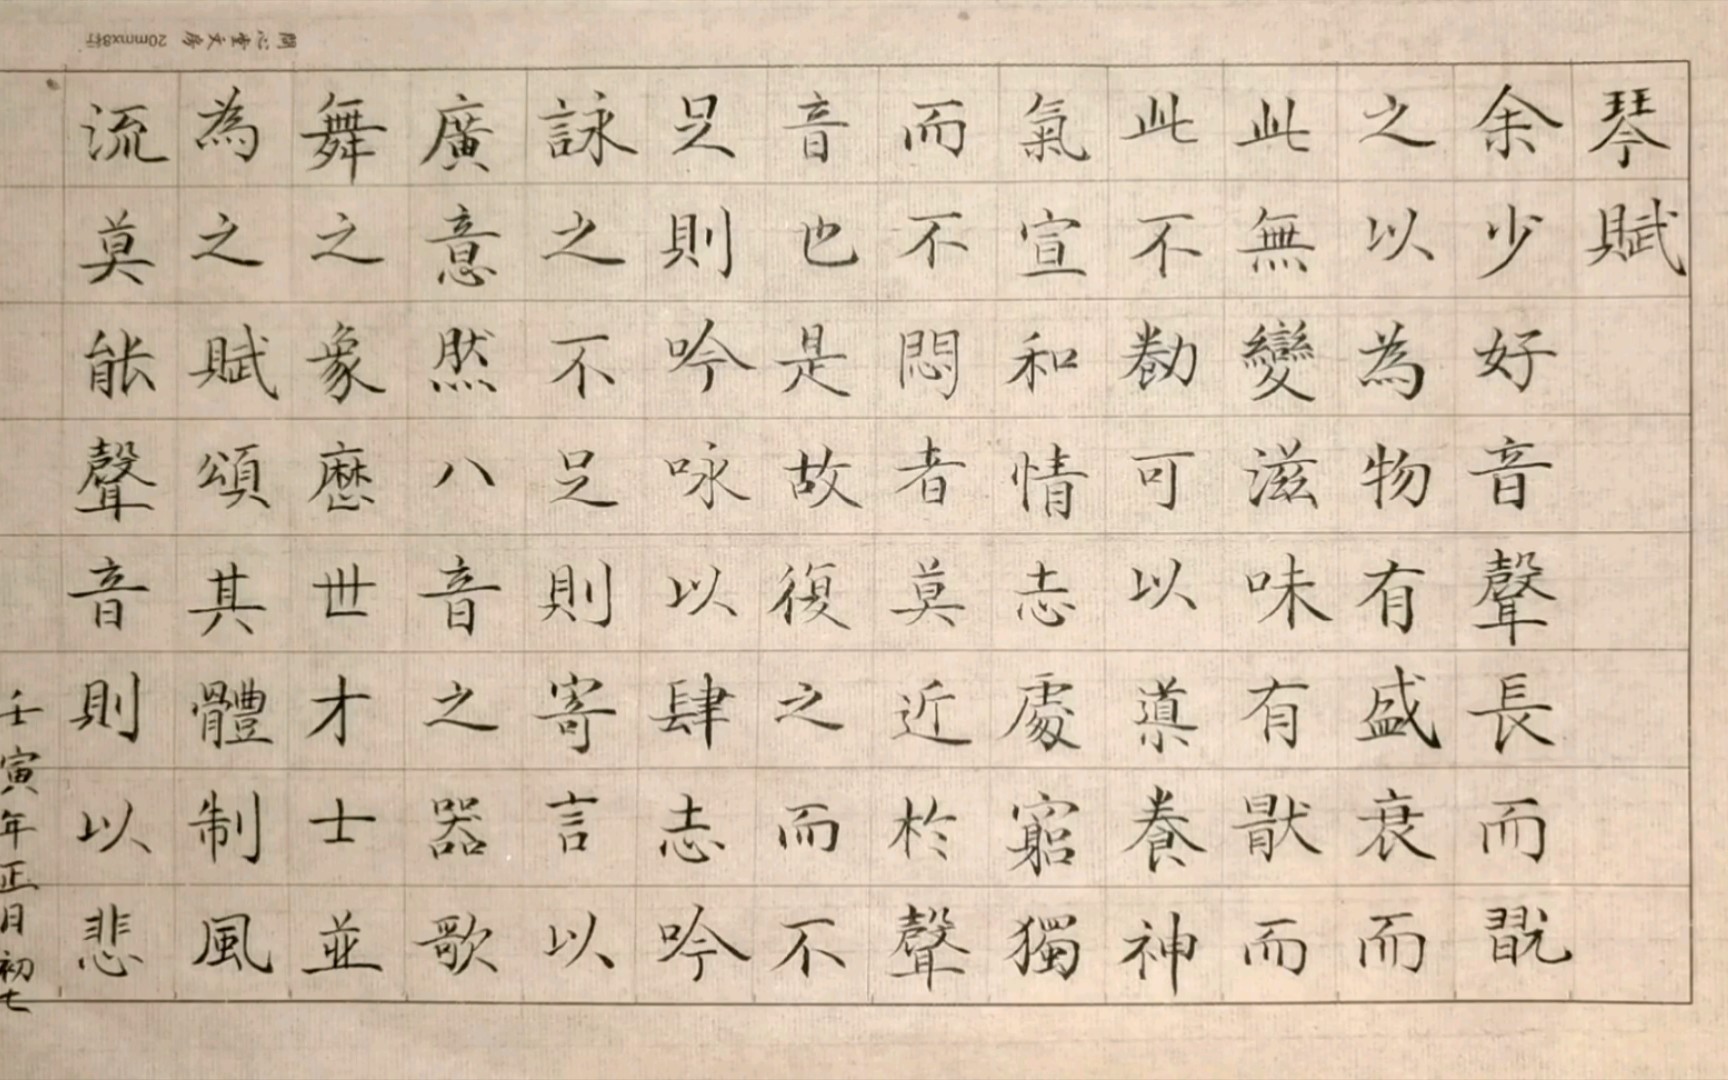 琴賦
余少好音聲長而翫
之以為物有盛衰而
此無變滋味有猒而
此不勌可以導養神
氣宣和情志處窮獨
而不悶者莫近於聲
音也是故復之而不
足則吟咏以肆志吟
詠之不足則寄言以
廣意然八音之器歌
舞之象歷世才士並
為之賦頌其體制風
流莫能聲音則以悲
壬寅年正月初七
開心堂文房 20mmx8行